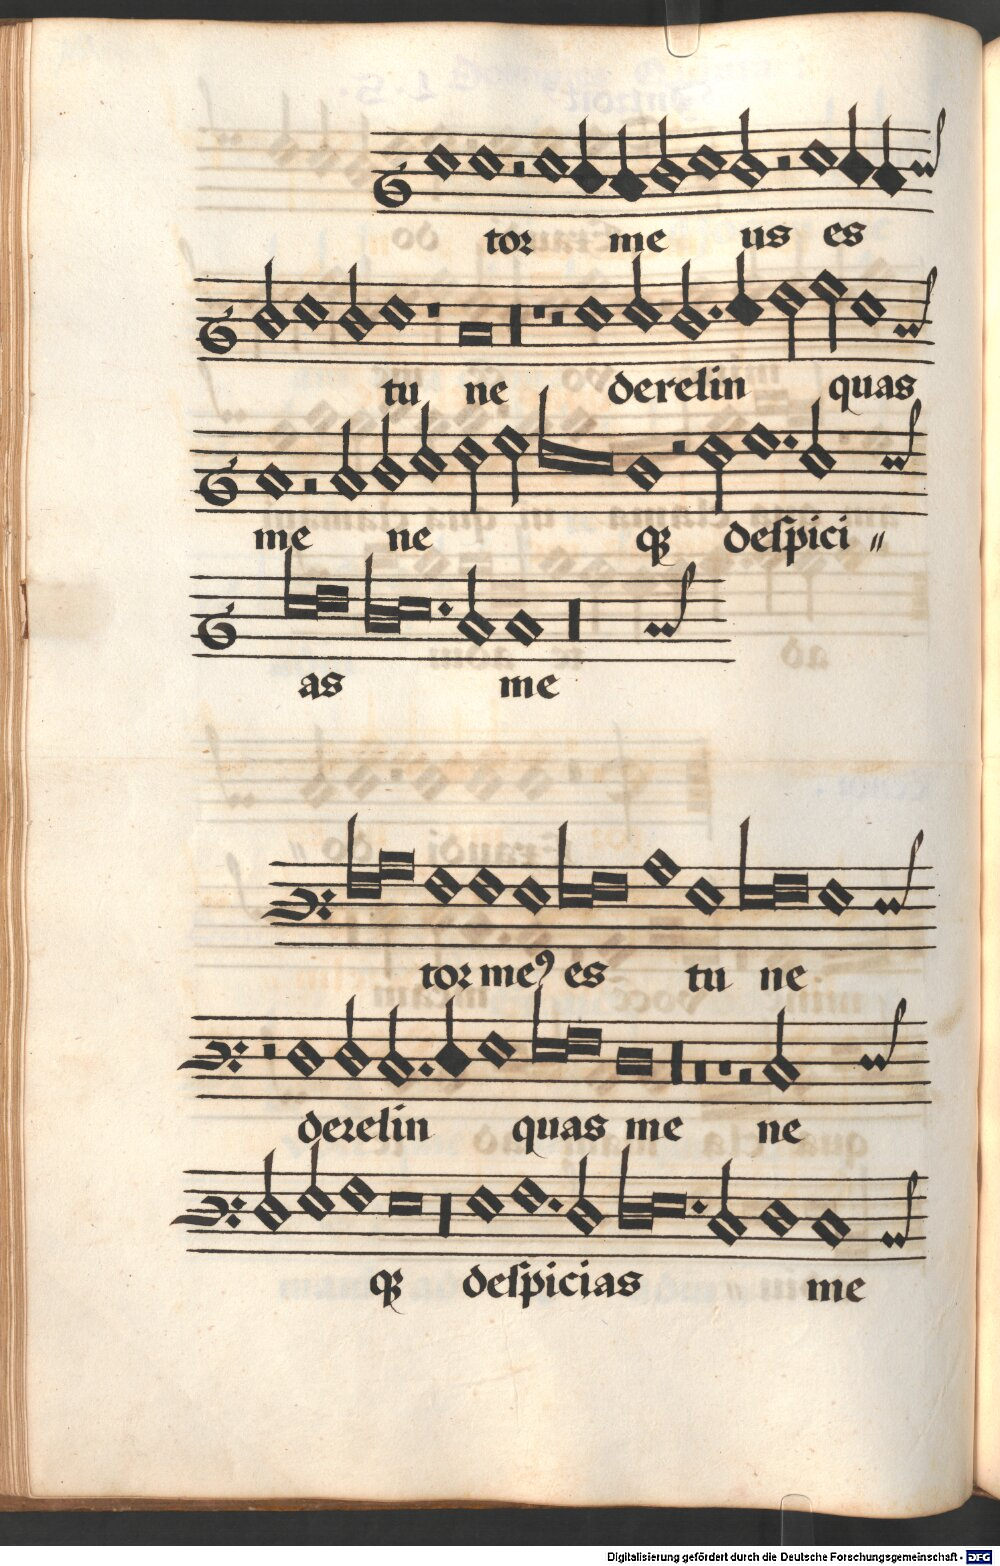 tor me us es
tu ne derelin quas
me ne qꝫ despici〃
as me
tor meꝰ es tu ne
derelin quas me ne
qꝫ despicias me
Digitalisierung gefördert durch die Deutsche Forschungsgemeinschaft - DFG